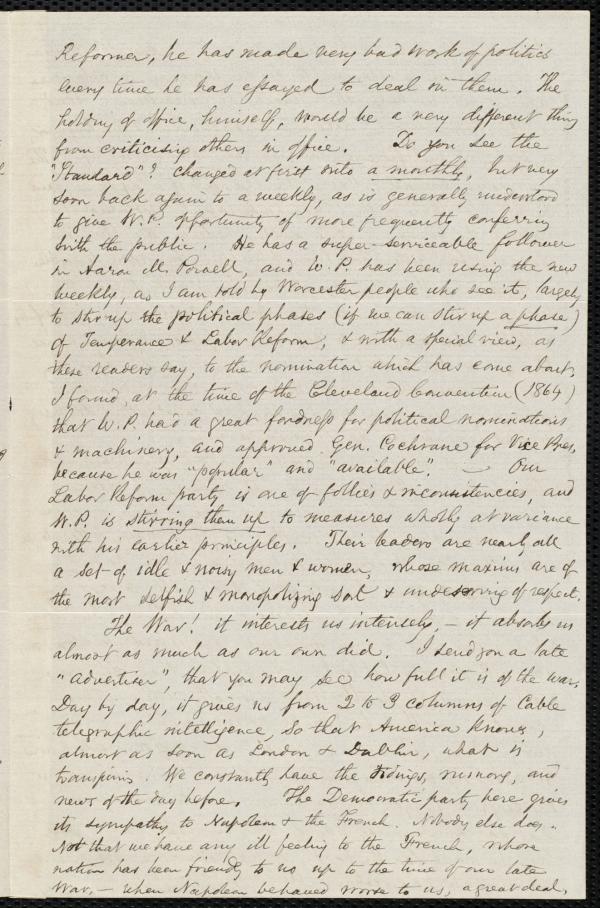 Reformer, he has made very bad work of politics
every time he has essayed to deal in them. The
holding of office, himself, would be a very different thing
from criticising others in office. Do you see the
"Standard"? changed at first into a monthly, but very
soon back again to a weekly, as is generally understood
to give W.P. opportunity of more frequently conferring
with the public. He has a super-serviceable follower
in Aaron M. Powell, and W.P. has been using the new
weekly, as I am told by Worcester people who see it, largely
to stir up the political phases (if we can stir up a phase)
of Temperance & Labor Reform, & with a special view, as
these readers say, to the nomination which has come about.
I found, at the time of the Cleveland Convention (1864)
that W.P. had a great fondness for political nominations
& machinery, and approved Gen. Cochrane for Vice Pres.
because he was "popular" and "available". — Our
Labor Reform party is one of follies & inconsistencies, and
W.P. is stirring them up to measures wholly at variance
with his earlier principles. Their leaders are nearly all
a set of idle & noisy men & women, whose maxims are of
the most selfish & monopolizing sort & undeserving of respect.
The War! it interests us intensely, – it absorbs us
almost as much as our own did. I send you a late
"Advertiser", that you may see how full it is of the war.
Day by day, it gives us from 2 to 3 columns of Cable
telegraphic intelligence, so that America knows,
almost as soon as London & Dublin, what is
transpiring. We constantly have the tidings, rumors, and
news of the day before. The Democratic party here gives
its sympathy to Napoleon & the French. Nobody else does.
Not that we have any ill feeling to the French, whose
nation has been friendly to us up to the time of our late
War, – when Napoleon behaved worse to us, a great deal,